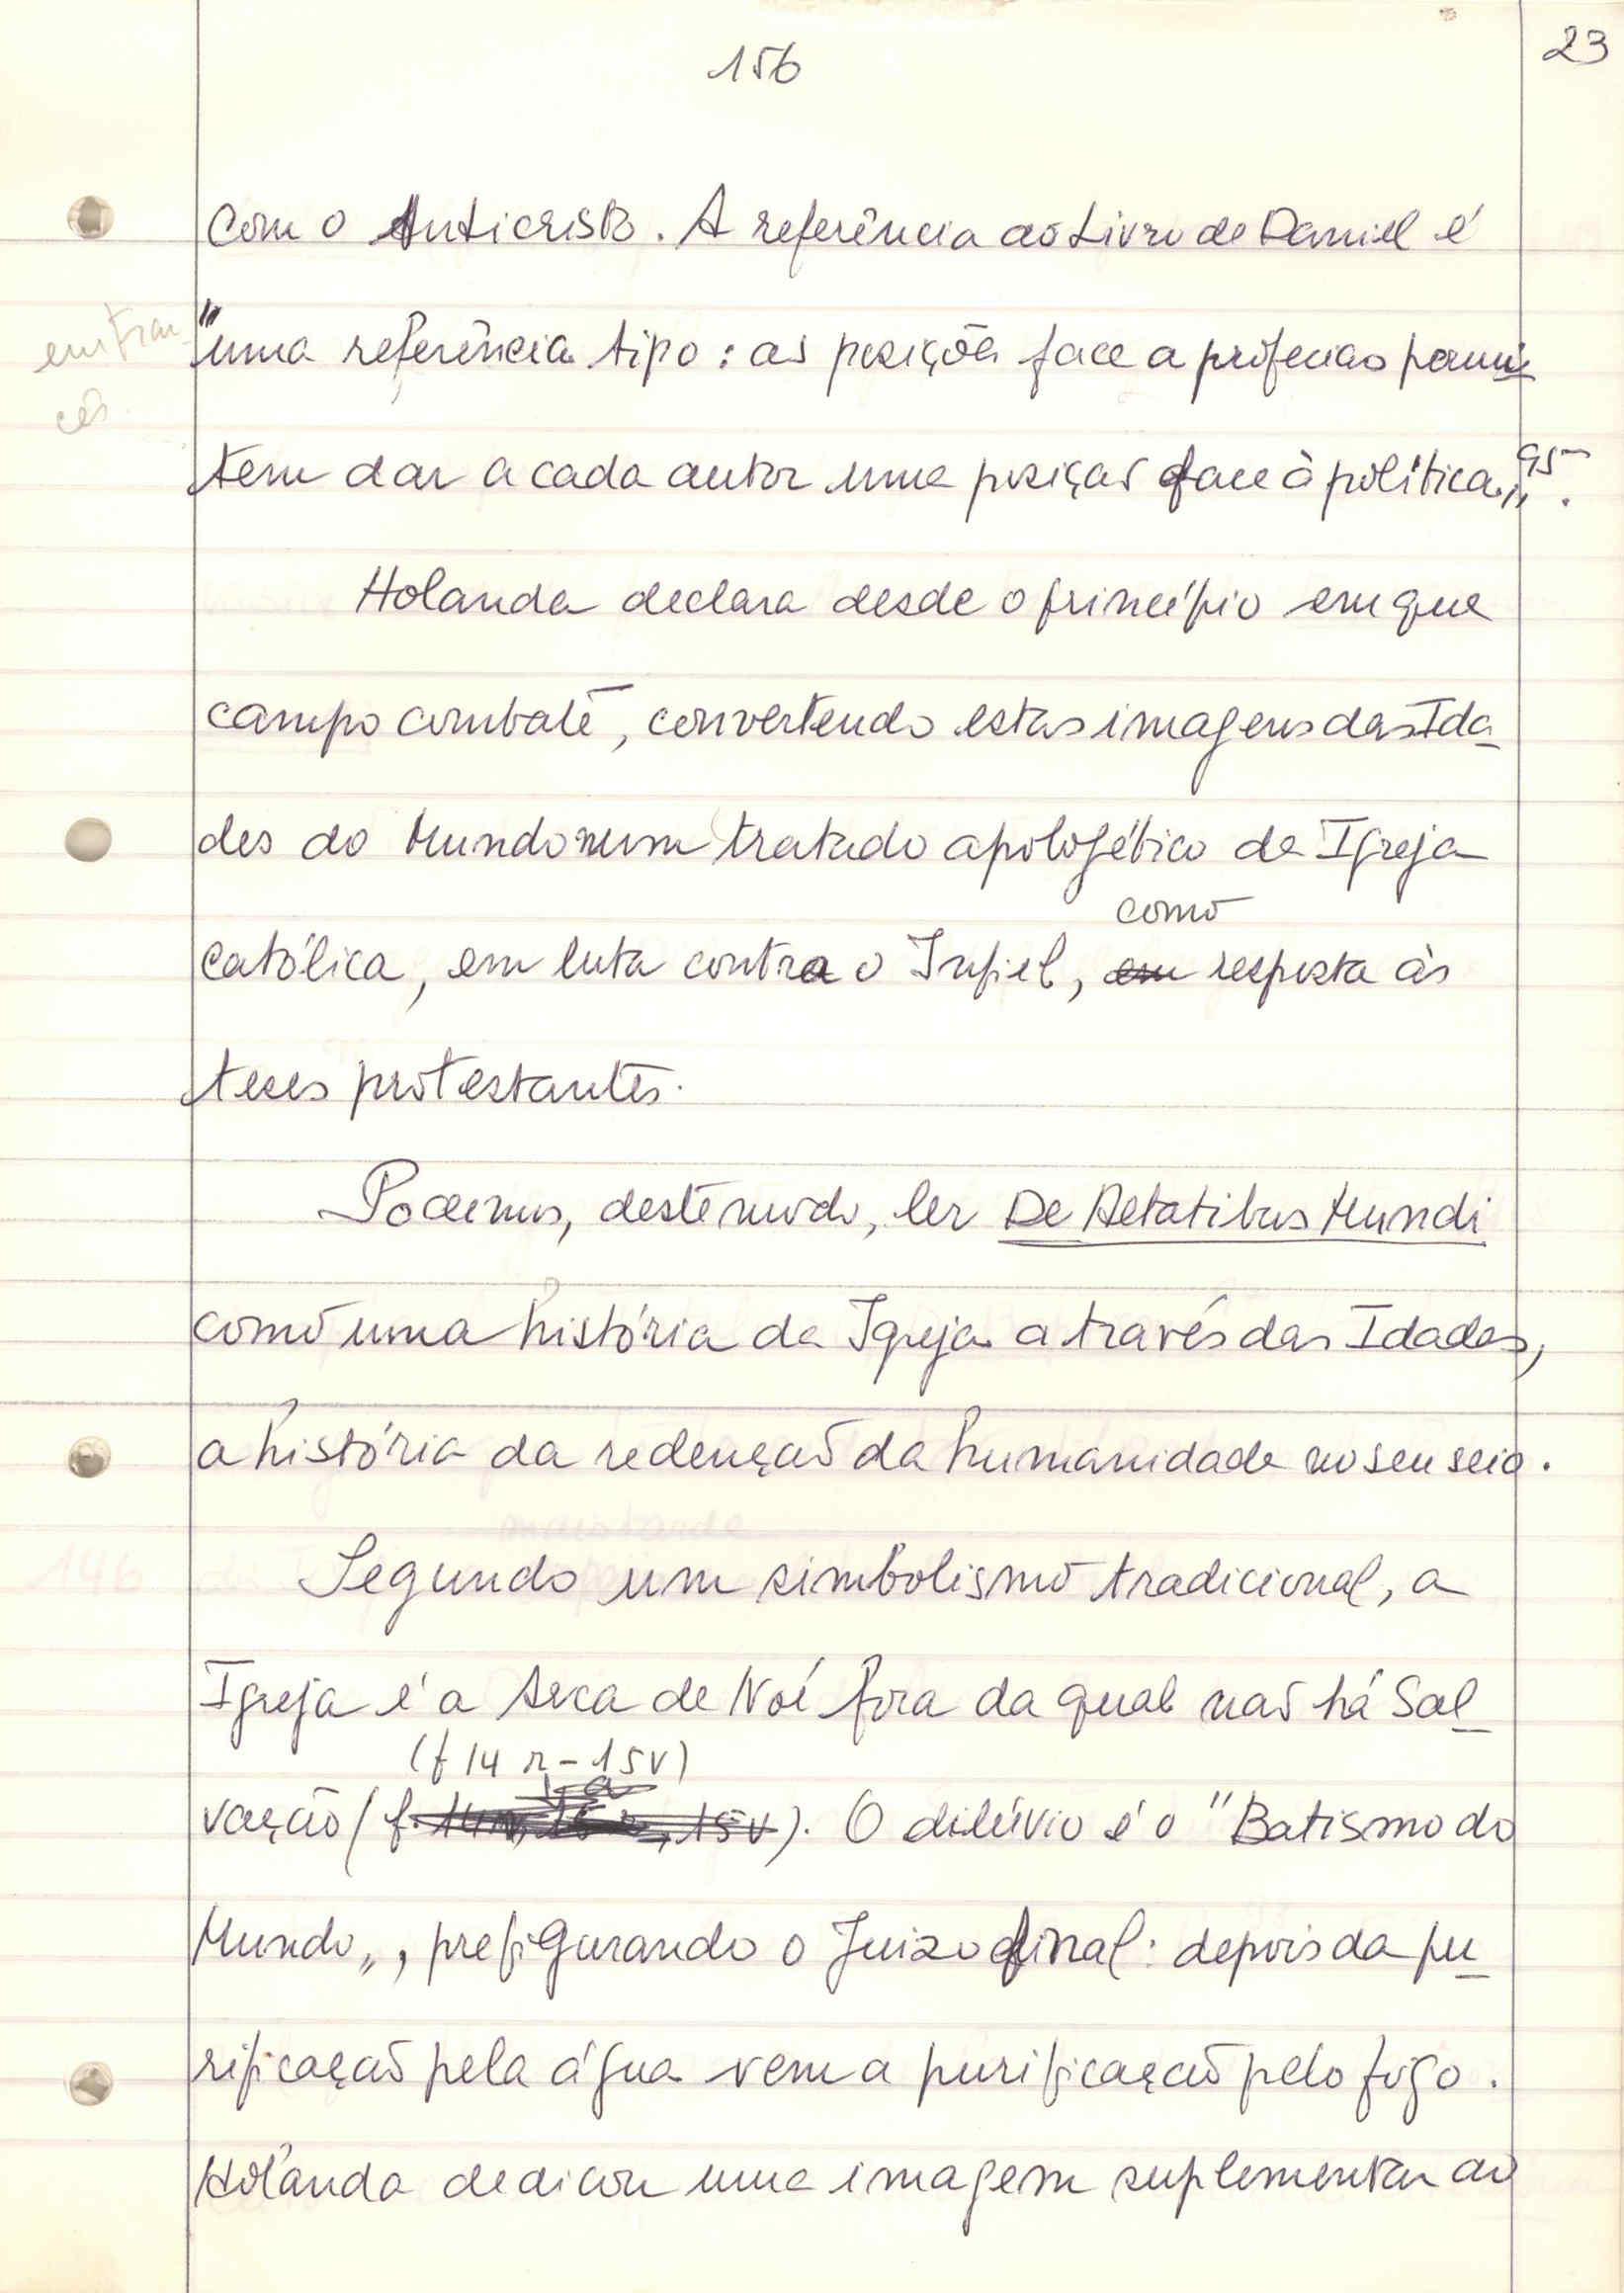 156
23
com o Anticristo. A referência ao Livro de Daniel é
em fran
"uma referência tipo: as posições face a profecias permi
cês
tem dar a cada autor uma posição face à política„ 95.
Holanda declara desde o princípio em que
campo combate, convertendo estas imagens das Ida
des do Mundo num tratado apologético da Igreja
como
católica, em luta contra o Infiel, em resposta às
teses protestantes.
Podemos, deste modo, ler De Aetatibus Mundi
como uma história da Igreja através das Idades,
a história da redenção da humanidade no seu seio.
Segundo um simbolismo tradicional, a
Igreja é a Arca de Noé fora da qual não há Sal
(f 14 r - 15v)
vação (f. 14r, 15v). O dilúvio é o "Batismo do
Mundo„, prefigurando o Juizo final: depois da pu
rificação pela água vem a purificação pelo fogo.
Holanda dedicou uma imagem suplementar ao